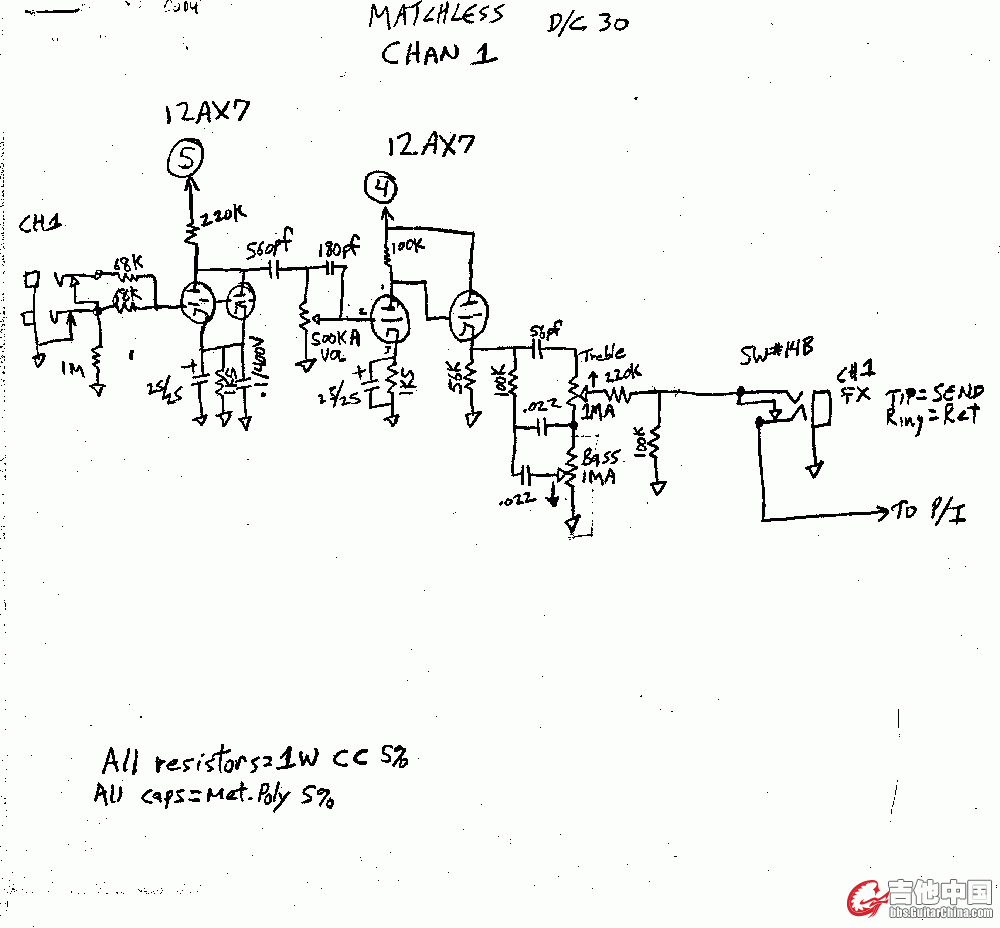 MATCHLESS D/C 30
CHAN 1
12AX7
5
220K
12AX7
4
100K
CH1
68K
68K
1M
560pf
180pf
500KA
VOL
1
2
3
25/25
1K5
.1/400V
25/25
1K5
56K
56pf
100K
Treble
220K
1MA
.022
Bass
1MA
.022
100K
SW#14B
CH1
FX
TIP=SEND
Ring=Ret
TO P/I
All resistors=1W CC 5%
All caps=Met.Poly 5%
吉他中国
bbs.GuitarChina.com